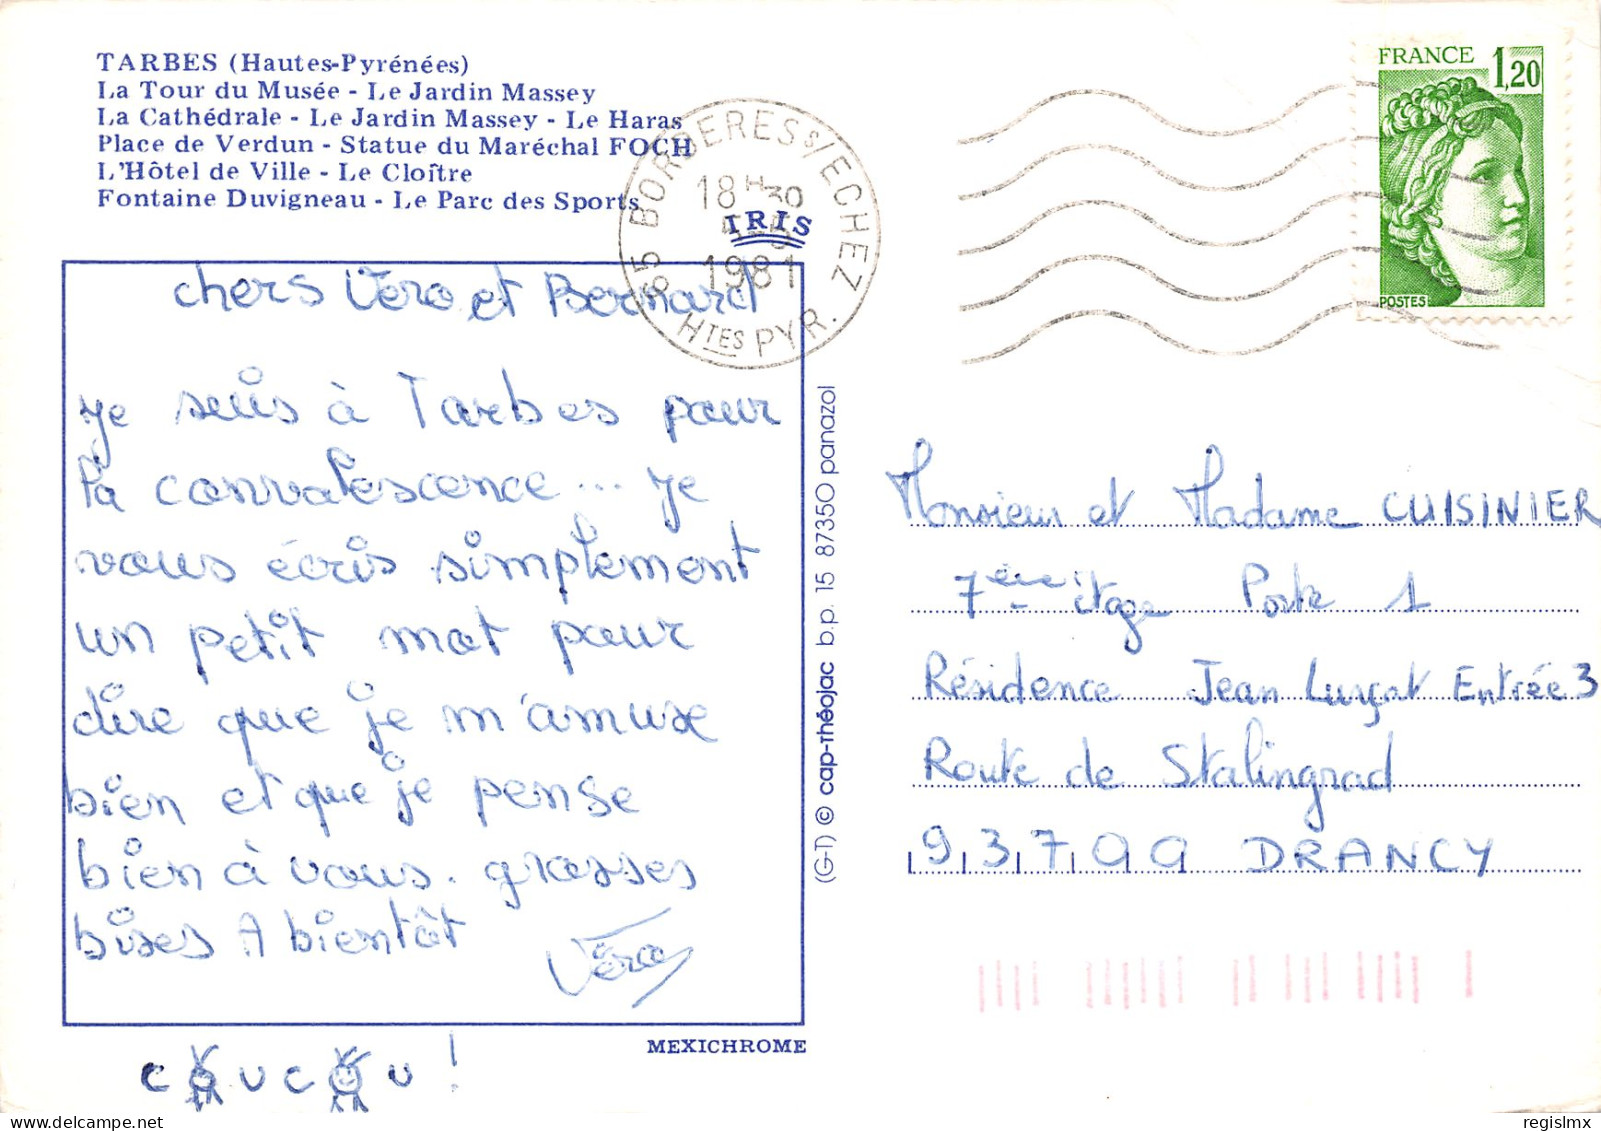 TARBES (Hautes-Pyrénées)
La Tour du Musée - Le Jardin Massey
La Cathédrale - Le Jardin Massey - Le Haras
Place de Verdun - Statue du Maréchal FOCH
L'Hôtel de Ville - Le Cloître
Fontaine Duvigneau - Le Parc des Sports
IRIS
65 BORDERES S/ECHEZ
18 H 30
1981
HTES PYR.
FRANCE 1,20
POSTES
chers Véro et Bernard
je suis à Tarbes pour
la convalescence... je
vous écris simplement
un petit mot pour
dire que je m'amuse
bien et que je pense
bien à vous. grosses
bises A bientôt
Véro
COUCOU !
MEXICHROME
(G-T) © cap-théojac b.p. 15 87350 panazol
Monsieur et Madame CUISINIER
7ème étage Porte 1
Résidence Jean Lurçat Entrée 3
Route de Stalingrad
93700 DRANCY
regislmx